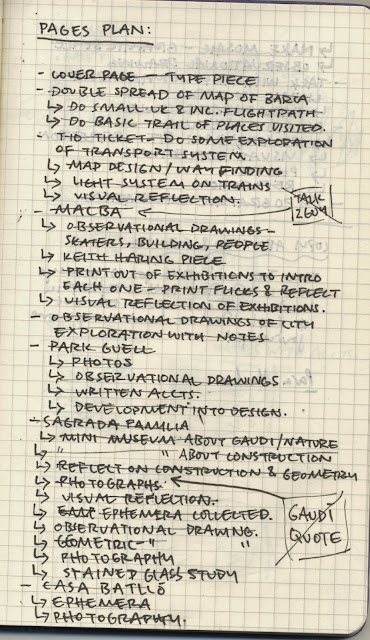 PAGES PLAN:
- COVER PAGE - TYPE PIECE
- DOUBLE SPREAD OF MAP OF BARCA
↳ DO SMALL UK & INC. FLIGHTPATH
↳ DO BASIC TRAIL OF PLACES VISITED.
- T10 TICKET - DO SOME EXPLORATION
OF TRANSPORT SYSTEM.
↳ MAP DESIGN/WAY FINDING
↳ LIGHT SYSTEM ON TRAINS
↳ VISUAL REFLECTION.
- MACBA
TALK
↳ OBSERVATIONAL DRAWINGS -
SKATERS, BUILDING, PEOPLE
↳ KEITH HARING PIECE
↳ PRINT OUT OF EXHIBITIONS TO INTRO
EACH ONE - PRINT FLICKS & REFLECT
↳ VISUAL REFLECTION OF EXHIBITIONS.
- OBSERVATIONAL DRAWINGS OF CITY
EXPLORATION WITH NOTES
- PARK GUELL
↳ PHOTOS
↳ OBSERVATIONAL DRAWINGS
↳ WRITTEN ACCTS.
↳ DEVELOPMENT INTO DESIGN.
- SAGRADA FAMILIA
↳ MINI MUSEUM ABOUT GAUDI/NATURE
↳ " " ABOUT CONSTRUCTION
↳ REFLECT ON CONSTRUCTION & GEOMETRY
↳ PHOTOGRAPHS.
↳ VISUAL REFLECTION.
↳ EPHEMERA COLLECTED.
GAUDI
QUOTE
↳ OBSERVATIONAL DRAWING.
↳ GEOMETRIC " "
↳ PHOTOGRAPHY
↳ STAINED GLASS STUDY
- CASA BATLLÓ
↳ EPHEMERA
↳ PHOTOGRAPHY.